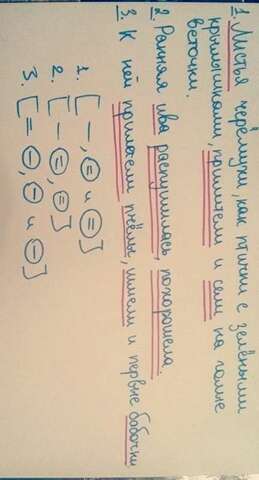 1. Листья черёмухи, как птички с зелёными
крылышками, прилетели и сели на голые
веточки.
2. Ранняя ива распушилась, похорошела.
3. К ней прилетели пчёлы, шмели и первые бабочки
1. [—, = и =]
2. [— =, =]
3. [= —, — и —]